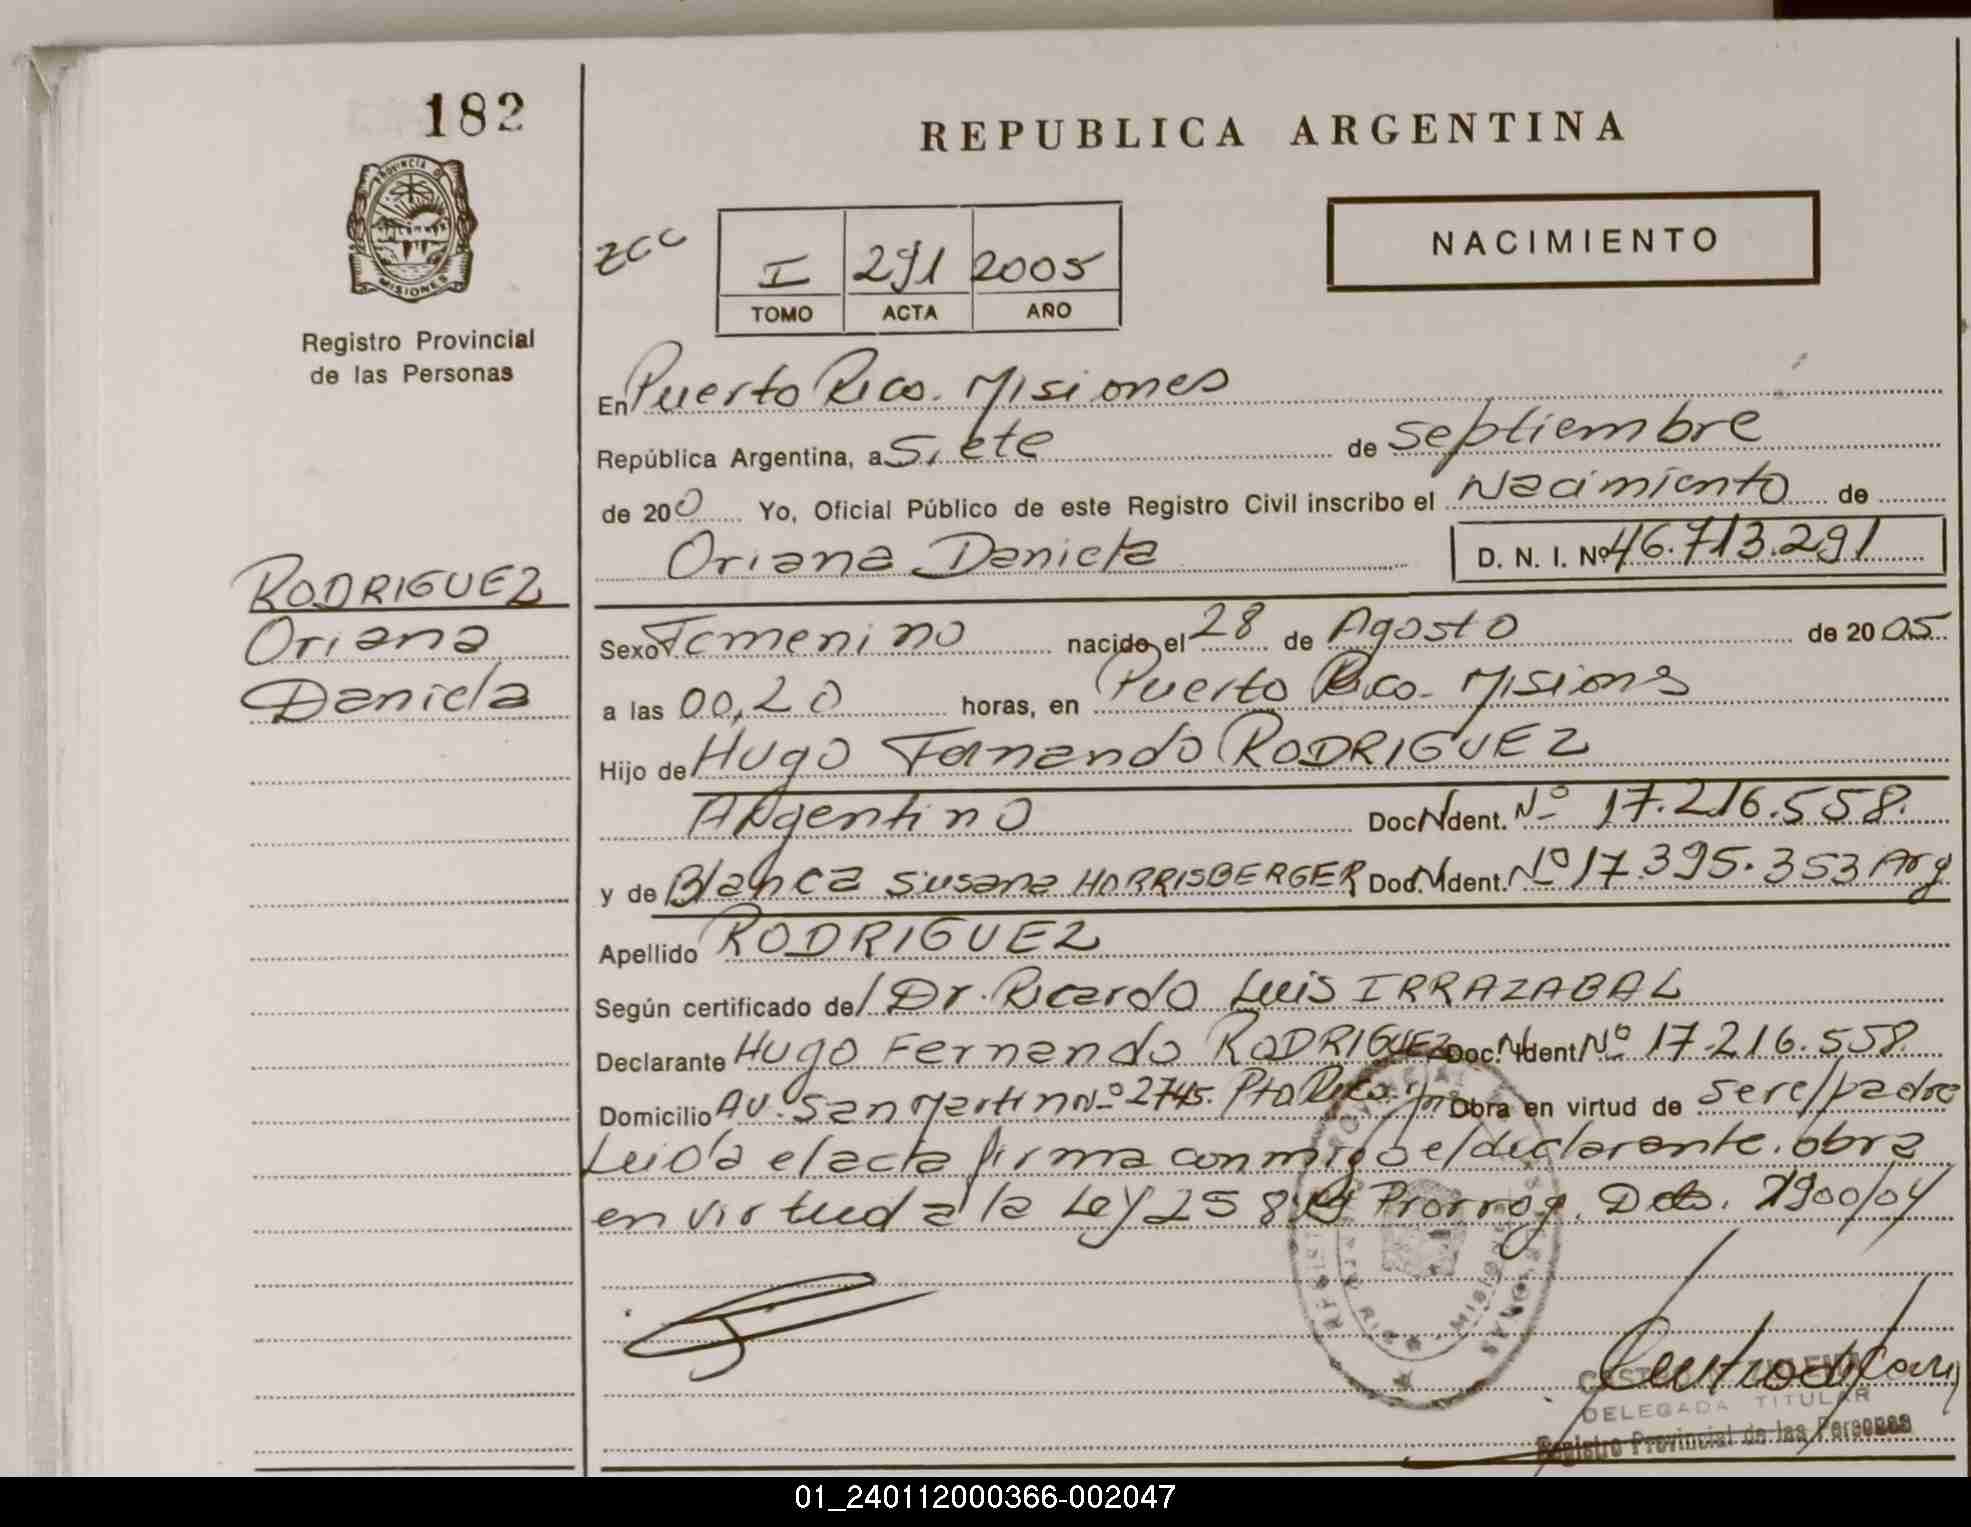 182
PROVINCIA DE
MISIONES
Registro Provincial
de las Personas
RODRIGUEZ
Oriana
Daniela
REPUBLICA ARGENTINA
NACIMIENTO
I 291 2005
TOMO ACTA AÑO
En Puerto Rico. Misiones
República Argentina, a Siete de septiembre
de 200 Yo, Oficial Público de este Registro Civil inscribo el Nacimiento de
Oriana Daniela D. N. I. Nº 46.713.291
Sexo Femenino nacido el 28 de Agosto de 2005
a las 00,20 horas, en Puerto Rico. Misiones
Hijo de Hugo Fernando RODRIGUEZ
Argentino Doc. Ident. Nº 17.216.558.
y de Blanca Susana HORRISBERGER Doc. Ident. Nº 17.395.353 Arg
Apellido RODRIGUEZ
Según certificado de/ Dr. Ricardo Luis IRRAZABAL
Declarante Hugo Fernando RODRIGUEZ Doc. Ident Nº 17.216.558.
Domicilio Av. San Martin Nº 2745. Pto Rico. Obra en virtud de ser el padre
Leida el acta firma conmigo el declarante. obra
en virtud a la Ley 25 8 Prorrog. Dto. 1900/04
DELEGADA TITULAR
Registro Provincial de las Personas
01_240112000366-002047